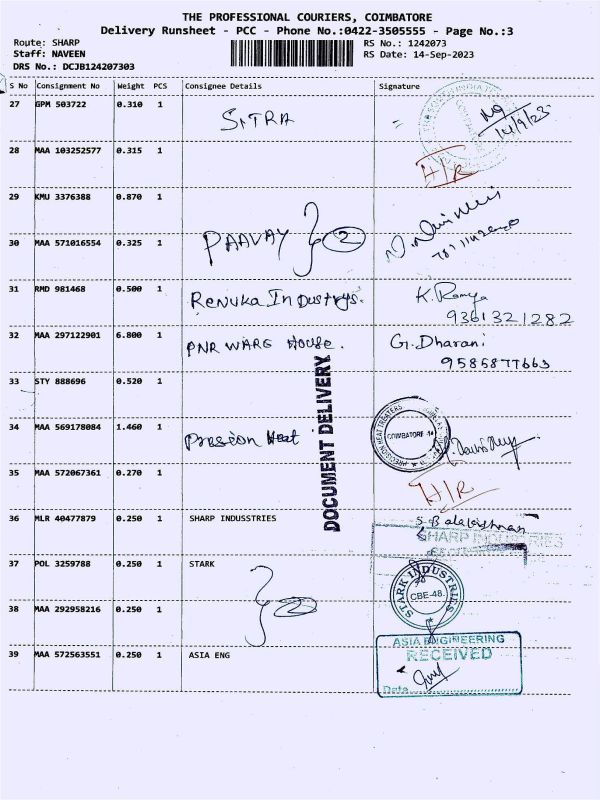 THE PROFESSIONAL COURIERS, COIMBATORE
Delivery Runsheet - PCC - Phone No.:0422-3505555 - Page No.:3
Route: SHARP
RS No.: 1242073
Staff: NAVEEN
RS Date: 14-Sep-2023
DRS No.: DCJB124207303
S No Consignment No Weight PCS Consignee Details Signature
27 GPM 503722 0.310 1 SITRA 14/9/23
28 MAA 103252577 0.315 1 H/R
29 KMU 3376388 0.870 1
30 MAA 571016554 0.325 1 PAAVAY 2
31 RMD 981468 0.500 1 Renuka Industrys. K. Ramya
9361321282
32 MAA 297122901 6.800 1 PNR WARG House. G. Dharani
9585877663
33 STY 888696 0.520 1
DOCUMENT DELIVERY
34 MAA 569178084 1.460 1 Presion Heat PRECISION HEAT TREATERS COIMBATORE
35 MAA 572067361 0.270 1 H/R
36 MLR 40477879 0.250 1 SHARP INDUSSTRIES S. Balakrishnan
SHARP INDUSTRIES
37 POL 3259788 0.250 1 STARK STARK INDUSTRIES CBE-48.
38 MAA 292958216 0.250 1 2
39 MAA 572563551 0.250 1 ASIA ENG ASIA ENGINEERING
RECEIVED
Date